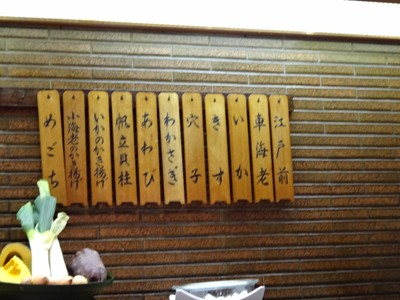 江戸前
車海老
いか
きす
穴子
わかさぎ
あわび
帆立貝柱
いかのかき揚げ
小海老のかき揚げ
めごち